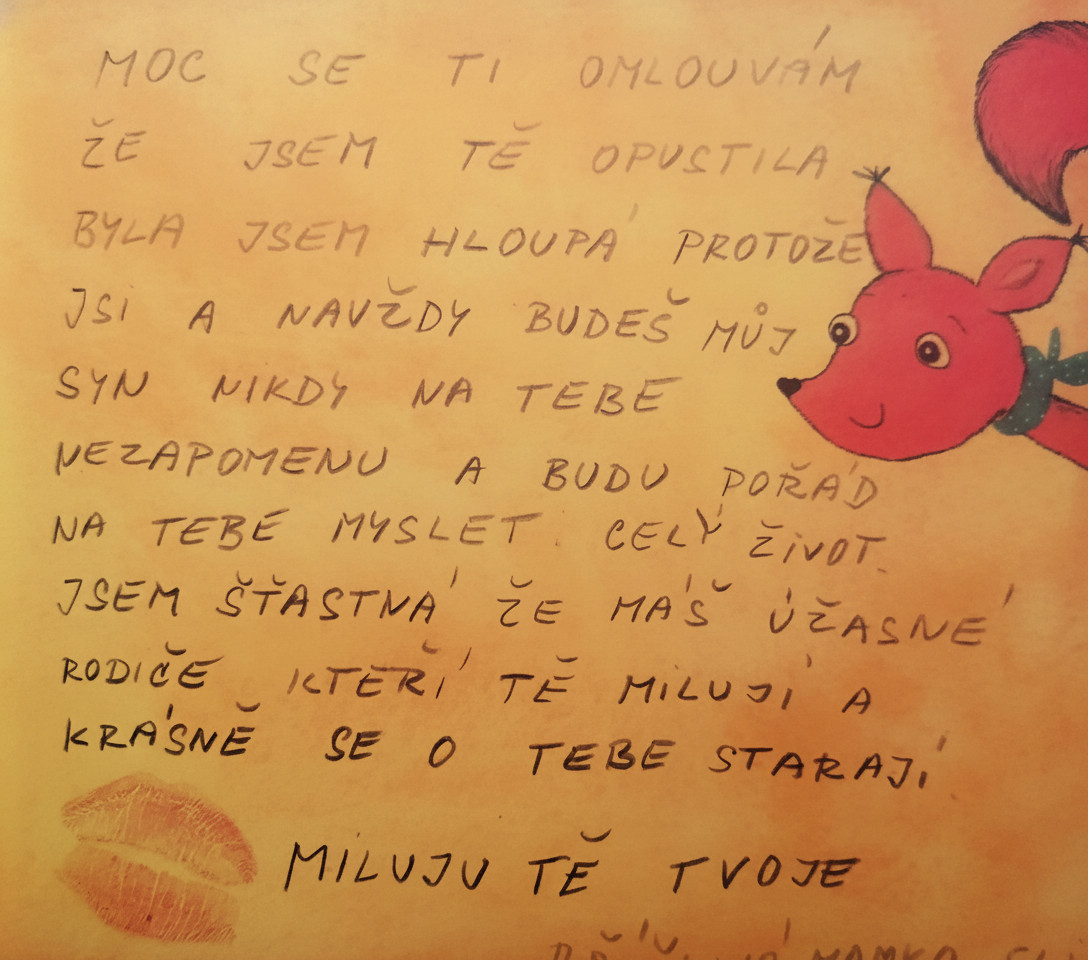 MOC SE TI OMLOUVÁM
ŽE JSEM TĚ OPUSTILA
BYLA JSEM HLOUPÁ PROTOŽE
JSI A NAVŽDY BUDEŠ MŮJ
SYN NIKDY NA TEBE
NEZAPOMENU A BUDU POŘÁD
NA TEBE MYSLET. CELÝ ŽIVOT.
JSEM ŠŤASTNÁ ŽE MÁŠ ÚŽASNÉ
RODIČE KTEŘÍ TĚ MILUJÍ A
KRÁSNĚ SE O TEBE STARAJÍ
MILUJU TĚ TVOJE
MAMKA